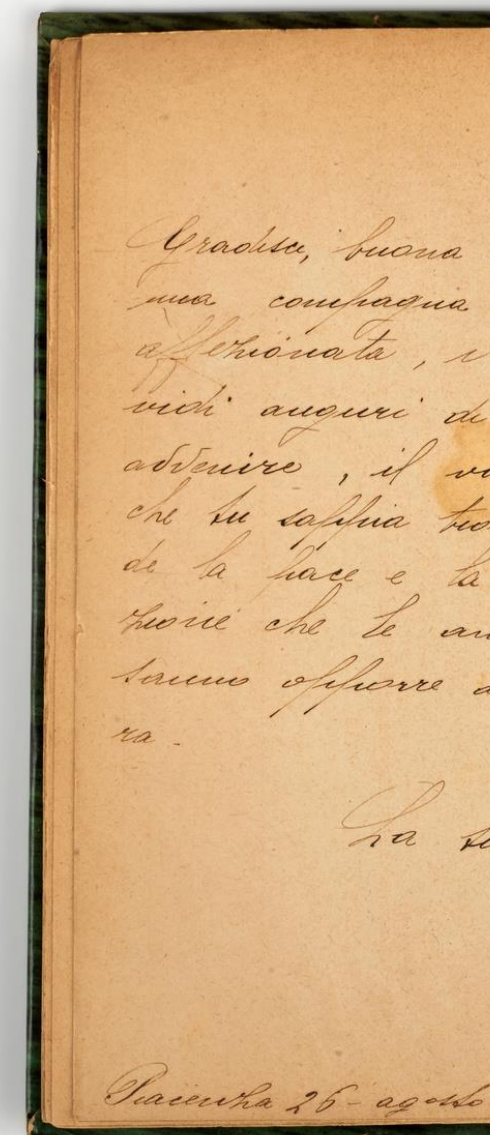 Gradisci, buona
una compagna
affezionata, i
vidi auguri di
avvenire, il vo
che tu sappia tro
de la pace e la
zione che le an
sanno opporre a
ra.
La tu
Piacenza 26 - agosto